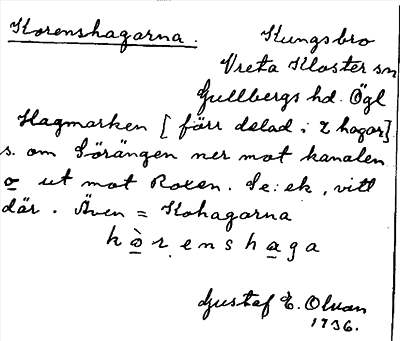 Korenshagarna.
Kungsbro
Vreta Kloster sn
Gullbergs hd. Ögl
Hagmarken [förr delad i 2 hagar]
s. om Sörängen ner mot kanalen
o ut mot Roxen. Se: ek, vitt
där. Även = Kohagarna
kòrenshaga
Gustaf E. Olvan
1936.